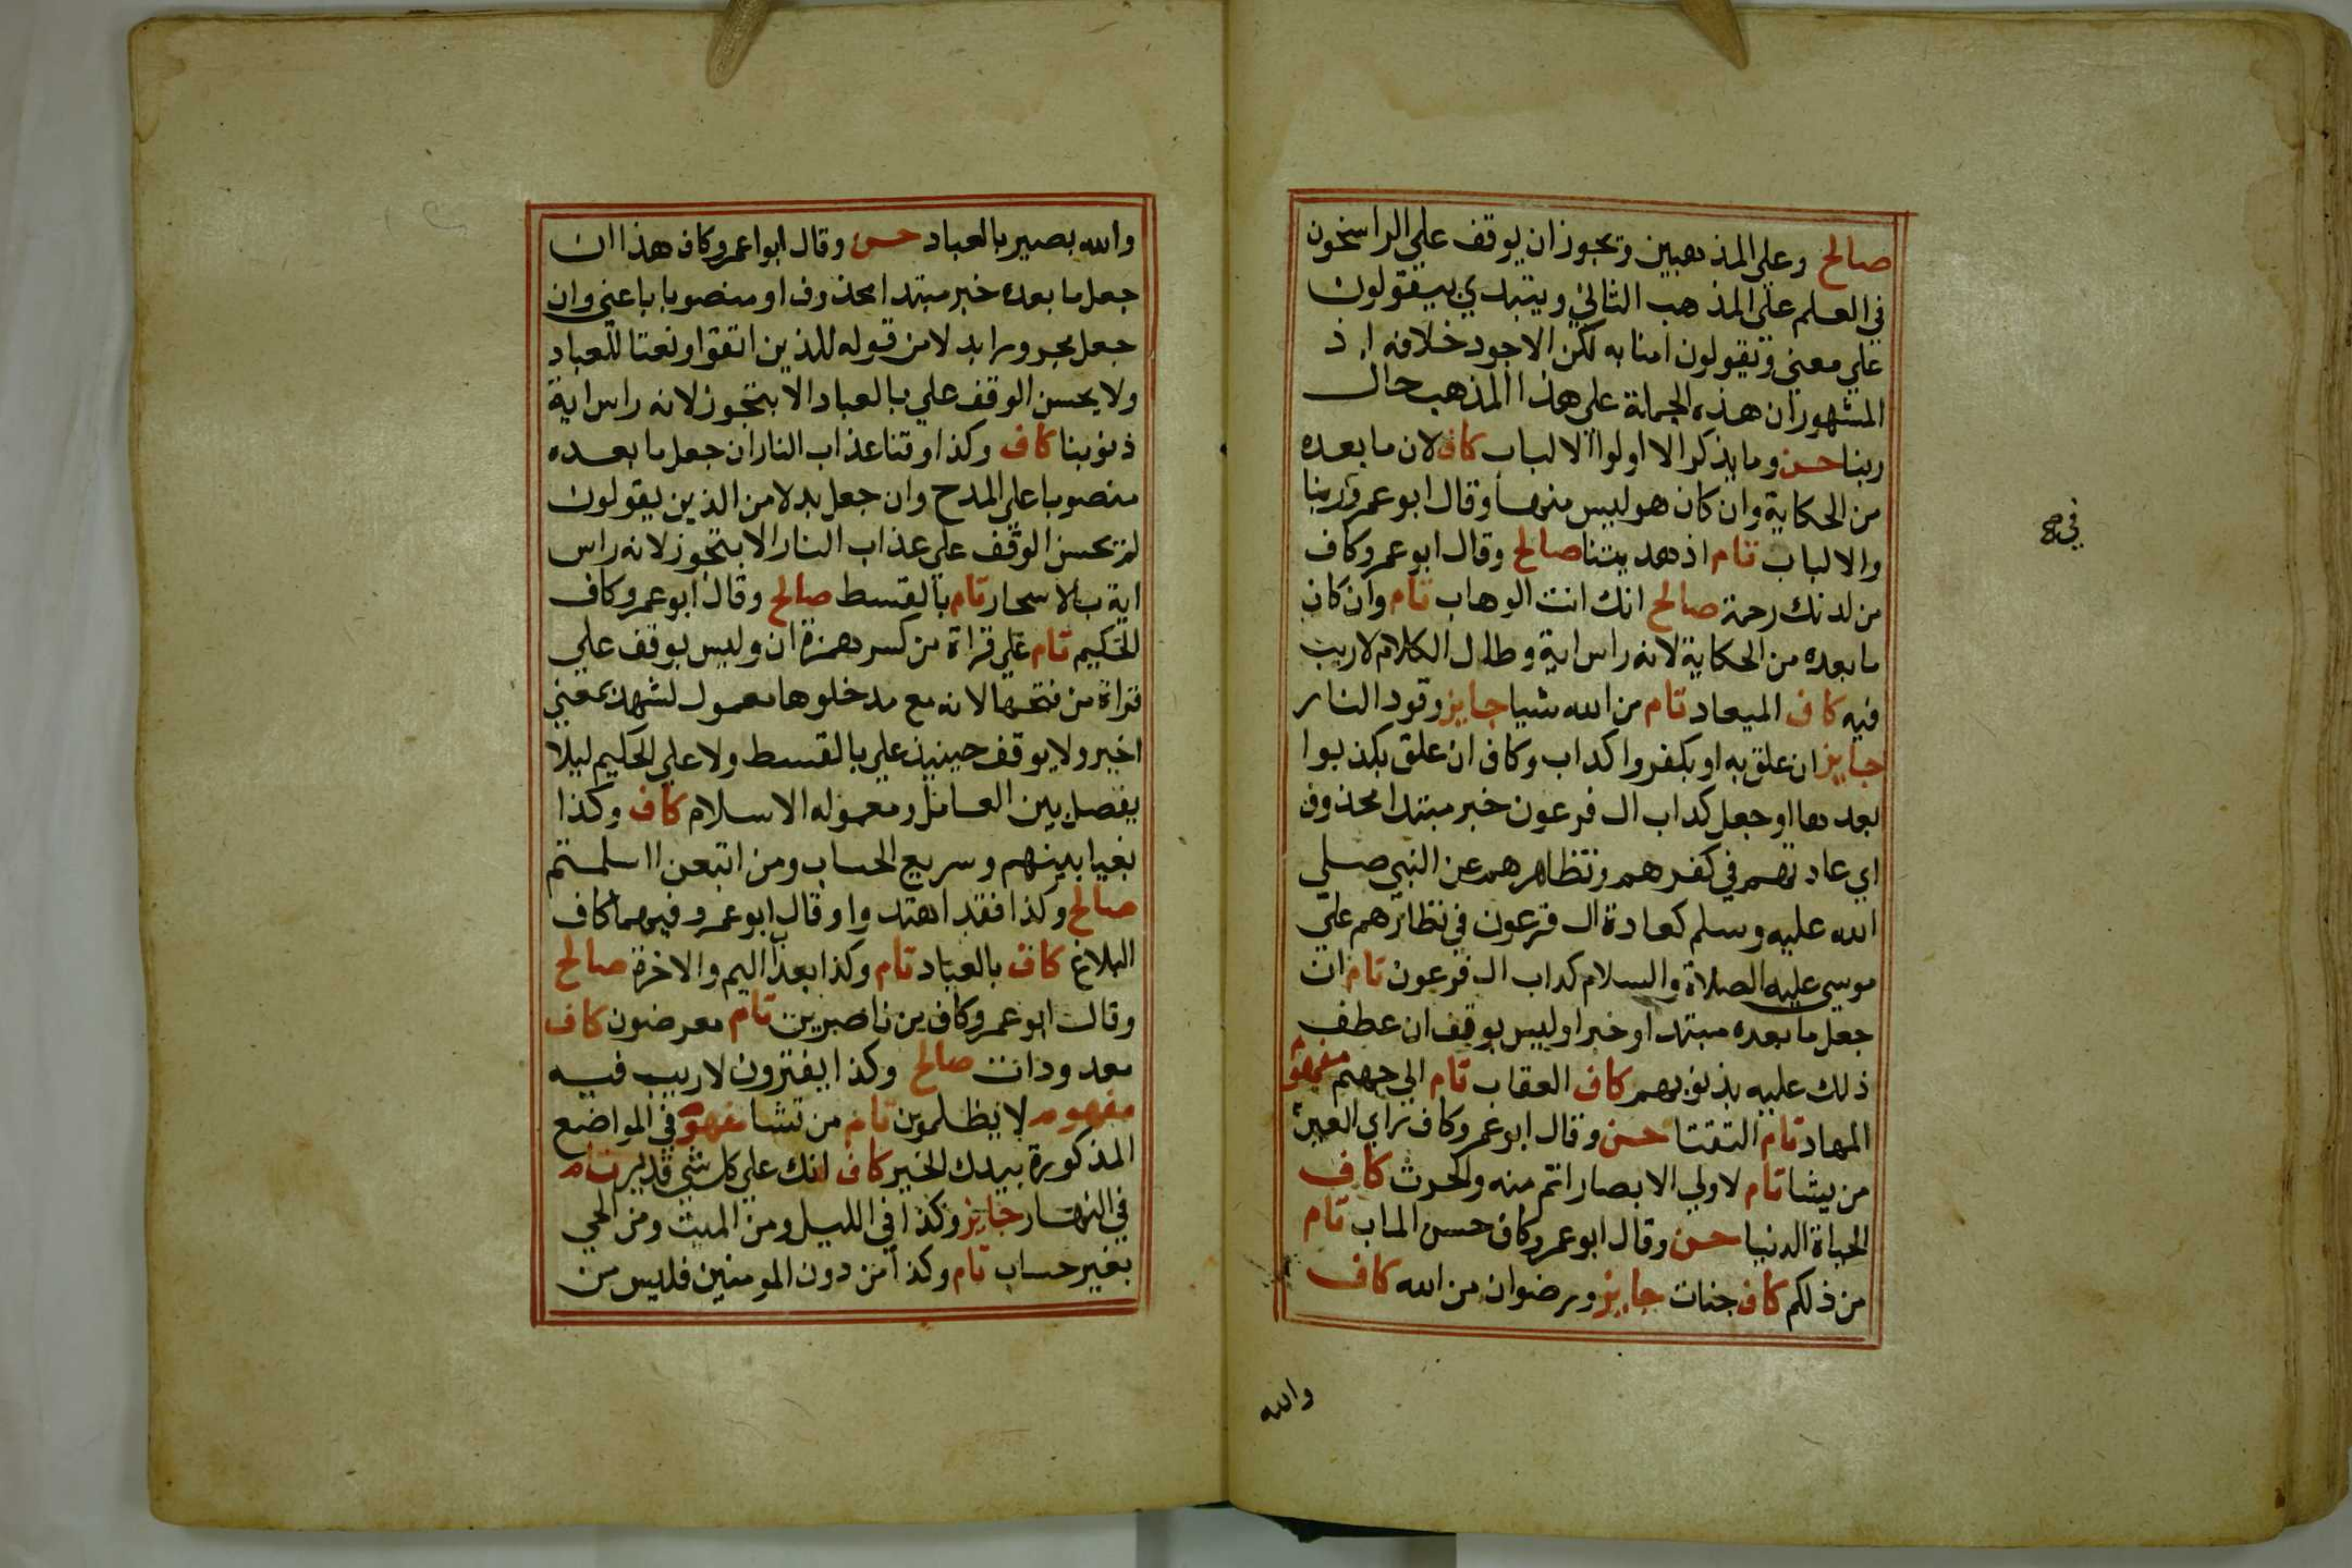 صالح وعلى المذهبين ويجوز ان يوقف علي الراسخون
في العلم على المذهب الثاني ويبتدي بيقولون
علي معني ويقولون امنا به لكن الاجود خلافه اذ
المشهور ان هذه الجملة علي هذا المذهب حال
ربنا حسن وما يذكر الا اولوا الالباب كاف لان ما بعده
من الحكاية وان كان هو ليس منها وقال ابو عمرو ربنا
في صح
والالباب تام اذ هديتنا صالح وقال ابو عمرو كاف
من لدنك رحمة صالح انك انت الوهاب تام وان كان
ما بعده من الحكاية لانه راس اية وطال الكلام لا ريب
فيه كاف الميعاد تام من الله شيا جايز وقود النار
جايز ان علق به او بكفروا كداب وكاف ان علق بكذبوا
بعدها او جعل كداب ال فرعون خبر مبتدا محذوف
اي عادتهم في كفرهم وتظاهرهم عن النبي صلي
الله عليه وسلم كعادة ال فرعون في تظاهرهم علي
موسي عليه الصلاة والسلام كداب ال فرعون تام ان
جعل ما بعده مبتدا وخبرا وليس بوقف ان عطف
ذلك عليه بذنوبهم كاف العقاب تام الي جهنم مفهوم
المهاد تام التقتا حسن وقال ابو عمرو كاف راي العين
من يشا تام لاولي الابصار اتم منه والحرث كاف
الحياة الدنيا حسن وقال ابو عمرو كاف حسن الماب تام
من ذلكم كاف جنات جايز ورضوان من الله كاف
والله
والله بصير بالعباد حسن وقال ابوا عمرو كاف هذا ان
جعل ما بعده خبر مبتدا محذوف او منصوبا باعني وان
جعل مجرورا بدلا من قوله للذين اتقوا او نعتا للعباد
ولا يحسن الوقف علي بالعباد الا بتجوز لانه راس اية
ذنوبنا كاف وكذا وقنا عذاب النار ان جعل ما بعده
منصوبا على المدح وان جعل بدلا من الذين يقولون
لم يحسن الوقف علي عذاب النار الا بتجوز لانه راس
اية بالاسحار تام بالقسط صالح وقال ابو عمرو كاف
الحكيم تام علي قراة من كسر همزة ان وليس بوقف علي
قراة من فتحها لانه مع مدخلوها معمول لشهد بمعني
اخبر ولا يوقف حينيذ علي بالقسط ولا علي الحكيم ليلا
يفصل بين العامل ومعموله الاسلام كاف وكذا
بغيا بينهم وسريع الحساب ومن اتبعن ااسلمتم
صالح وكذا فقد اهتدوا وقال ابو عمرو فيهما كاف
البلاغ كاف بالعباد تام وكذا بعذاب اليم والاخرة صالح
وقال ابو عمرو كاف من ناصرين تام معرضون كاف
معدودات صالح وكذا يفترون لا ريب فيه
مفهوم لا يظلمون تام من تشا مفهوم في المواضع
المذكورة بيدك الخير كاف انك علي كل شي قدير تام
في النهار جايز وكذا في الليل ومن الميت ومن الحي
بغير حساب تام وكذا من دون المومنين فليس من